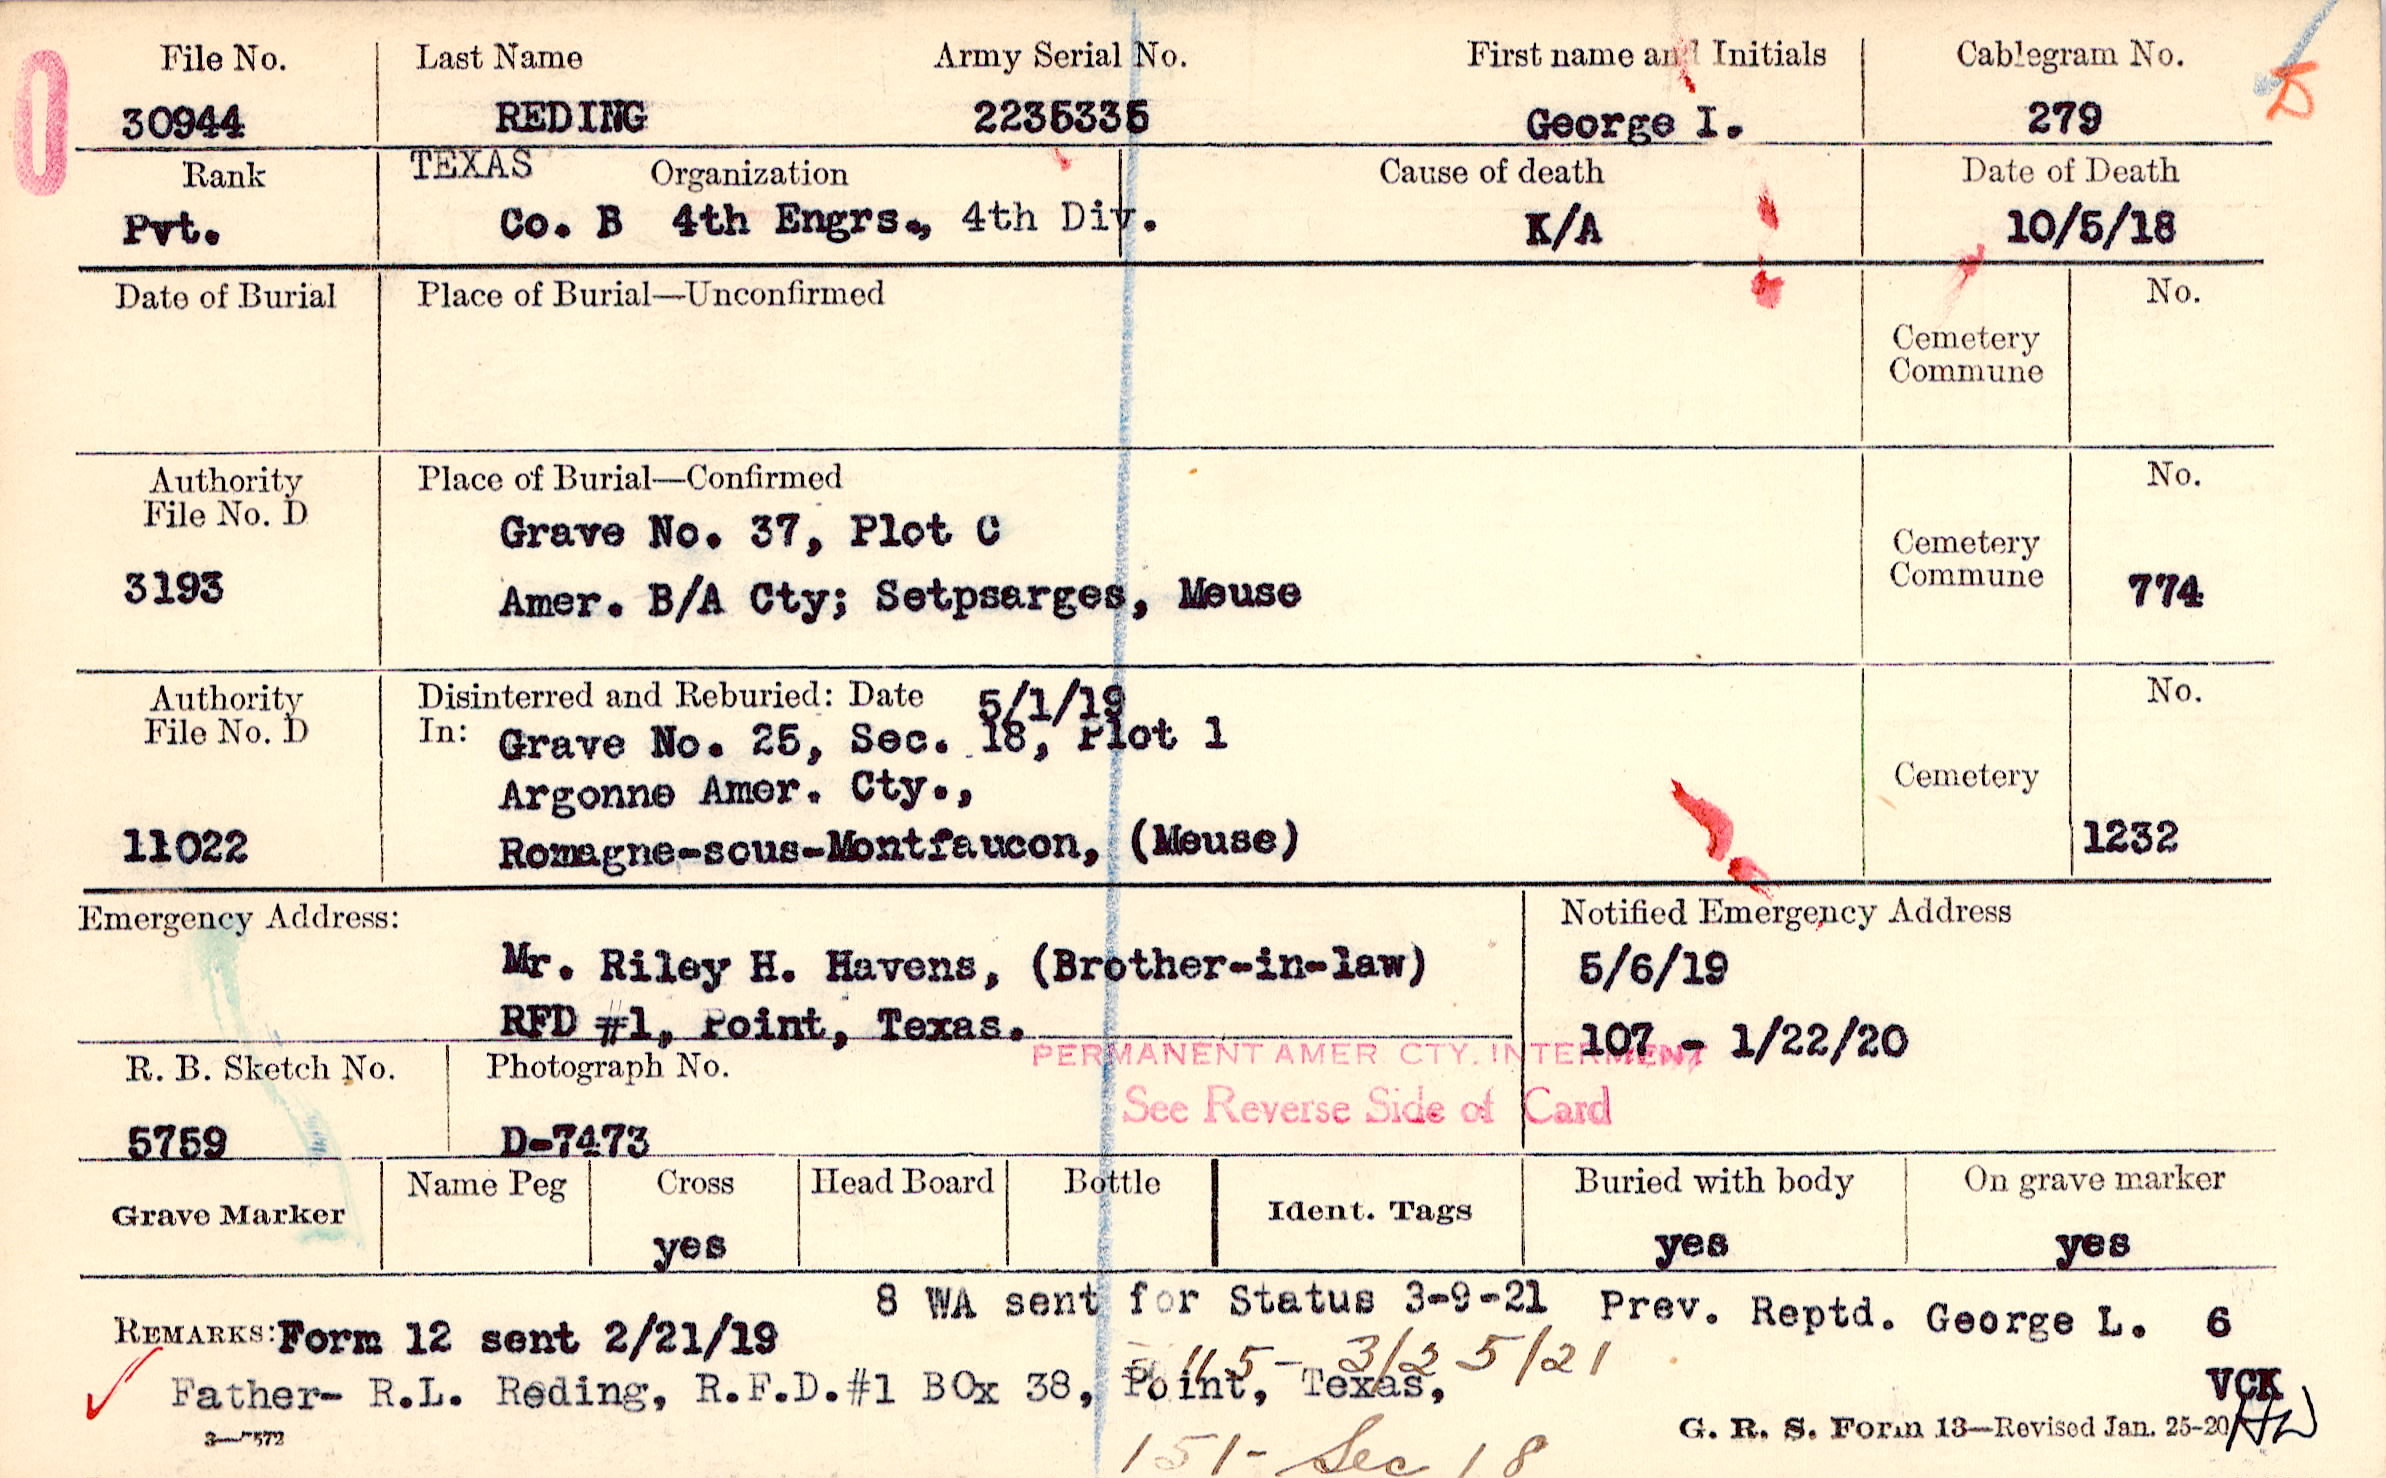 File No. Last Name Army Serial No. First name and Initials Cablegram No.
30944 REDING 2235335 George I. 279
Rank TEXAS Organization Cause of death Date of Death
Pvt. Co. B 4th Engrs., 4th Div. K/A 10/5/18
Date of Burial Place of Burial—Unconfirmed No.
Cemetery
Commune
Authority Place of Burial—Confirmed No.
File No. D
Grave No. 37, Plot C
Cemetery
3193 Commune 774
Amer. B/A Cty; Setpsarges, Meuse
Authority Disinterred and Reburied: Date 5/1/19 No.
File No. D In: Grave No. 25, Sec. 18, Plot 1
Argonne Amer. Cty., Cemetery
11022 Romagne-sous-Montfaucon, (Meuse) 1232
Emergency Address: Notified Emergency Address
Mr. Riley H. Havens, (Brother-in-law) 5/6/19
RFD #1, Point, Texas. 107 - 1/22/20
PERMANENT AMER. CTY. INTERMENT
R. B. Sketch No. Photograph No.
See Reverse Side of Card
5759 D-7473
Grave Marker Name Peg Cross Head Board Bottle Ident. Tags Buried with body On grave marker
yes yes yes
8 WA sent for Status 3-9-21 Prev. Reptd. George L. 6
REMARKS: Form 12 sent 2/21/19
3/25/21
Father- R.L. Reding, R.F.D.#1 BOx 38, Point, Texas, VCK
G. R. S. Form 13—Revised Jan. 25-20
151- Sec 18